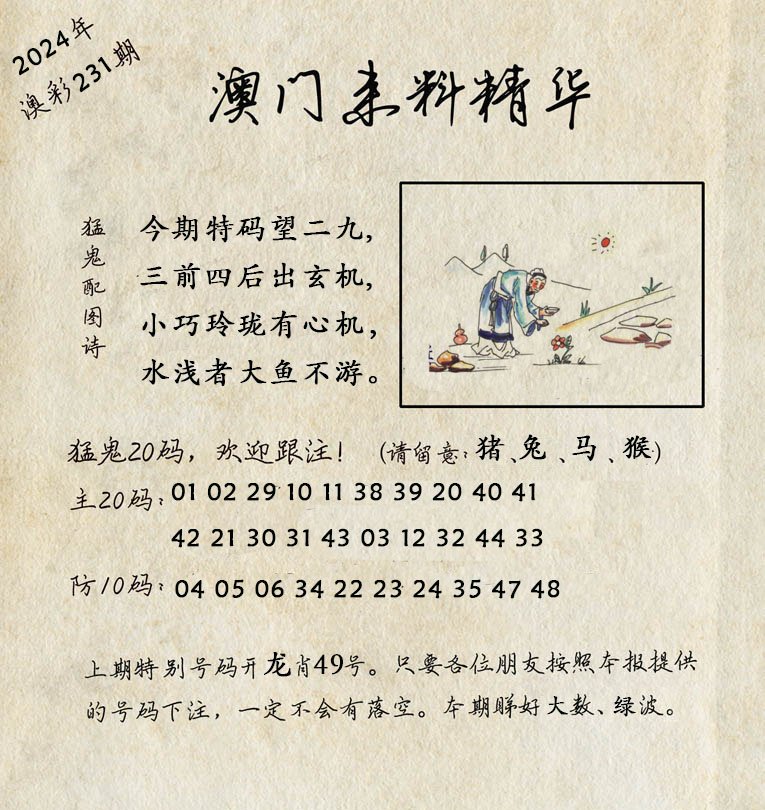 2024年
澳彩231期
澳门来料精华
猛鬼配图诗
今期特码望二九,
三前四后出玄机,
小巧玲珑有心机,
水浅者大鱼不游。
猛鬼20码,欢迎跟注! (请留意:猪、兔、马、猴)
主20码: 01 02 29 10 11 38 39 20 40 41
42 21 30 31 43 03 12 32 44 33
防10码: 04 05 06 34 22 23 24 35 47 48
上期特别号码开龙肖49号。只要各位朋友按照本报提供
的号码下注,一定不会有落空。本期睇好大数、绿波。